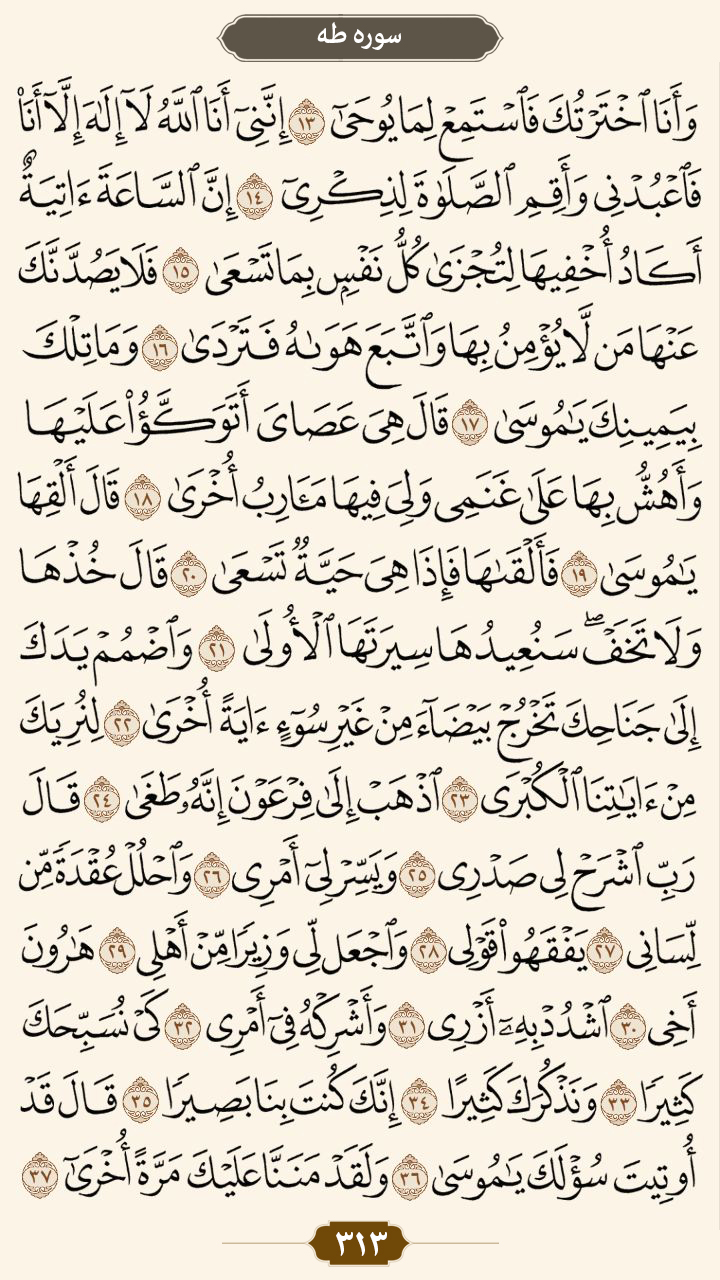 سوره طه
وَأَنَا ٱخْتَرْتُكَ فَٱسْتَمِعْ لِمَا يُوحَىٰٓ ١٣ إِنَّنِىٓ أَنَا ٱللَّهُ لَآ إِلَٰهَ إِلَّآ أَنَا۠
فَٱعْبُدْنِى وَأَقِمِ ٱلصَّلَوٰةَ لِذِكْرِىٓ ١٤ إِنَّ ٱلسَّاعَةَ ءَاتِيَةٌ
أَكَادُ أُخْفِيهَا لِتُجْزَىٰ كُلُّ نَفْسٍۭ بِمَا تَسْعَىٰ ١٥ فَلَا يَصُدَّنَّكَ
عَنْهَا مَن لَّا يُؤْمِنُ بِهَا وَٱتَّبَعَ هَوَىٰهُ فَتَرْدَىٰ ١٦ وَمَا تِلْكَ
بِيَمِينِكَ يَٰمُوسَىٰ ١٧ قَالَ هِىَ عَصَاىَ أَتَوَكَّؤُا۟ عَلَيْهَا
وَأَهُشُّ بِهَا عَلَىٰ غَنَمِى وَلِىَ فِيهَا مَـَٔارِبُ أُخْرَىٰ ١٨ قَالَ أَلْقِهَا
يَٰمُوسَىٰ ١٩ فَأَلْقَىٰهَا فَإِذَا هِىَ حَيَّةٌ تَسْعَىٰ ٢٠ قَالَ خُذْهَا
وَلَا تَخَفْ ۖ سَنُعِيدُهَا سِيرَتَهَا ٱلْأُولَىٰ ٢١ وَٱضْمُمْ يَدَكَ
إِلَىٰ جَنَاحِكَ تَخْرُجْ بَيْضَآءَ مِنْ غَيْرِ سُوٓءٍ ءَايَةً أُخْرَىٰ ٢٢ لِنُرِيَكَ
مِنْ ءَايَٰتِنَا ٱلْكُبْرَى ٢٣ ٱذْهَبْ إِلَىٰ فِرْعَوْنَ إِنَّهُۥ طَغَىٰ ٢٤ قَالَ
رَبِّ ٱشْرَحْ لِى صَدْرِى ٢٥ وَيَسِّرْ لِىٓ أَمْرِى ٢٦ وَٱحْلُلْ عُقْدَةً مِّن
لِّسَانِى ٢٧ يَفْقَهُوا۟ قَوْلِى ٢٨ وَٱجْعَل لِّى وَزِيرًا مِّنْ أَهْلِى ٢٩ هَٰرُونَ
أَخِى ٣٠ ٱشْدُدْ بِهِۦٓ أَزْرِى ٣١ وَأَشْرِكْهُ فِىٓ أَمْرِى ٣٢ كَىْ نُسَبِّحَكَ
كَثِيرًا ٣٣ وَنَذْكُرَكَ كَثِيرًا ٣٤ إِنَّكَ كُنتَ بِنَا بَصِيرًا ٣٥ قَالَ قَدْ
أُوتِيتَ سُؤْلَكَ يَٰمُوسَىٰ ٣٦ وَلَقَدْ مَنَنَّا عَلَيْكَ مَرَّةً أُخْرَىٰٓ ٣٧
٣١٣